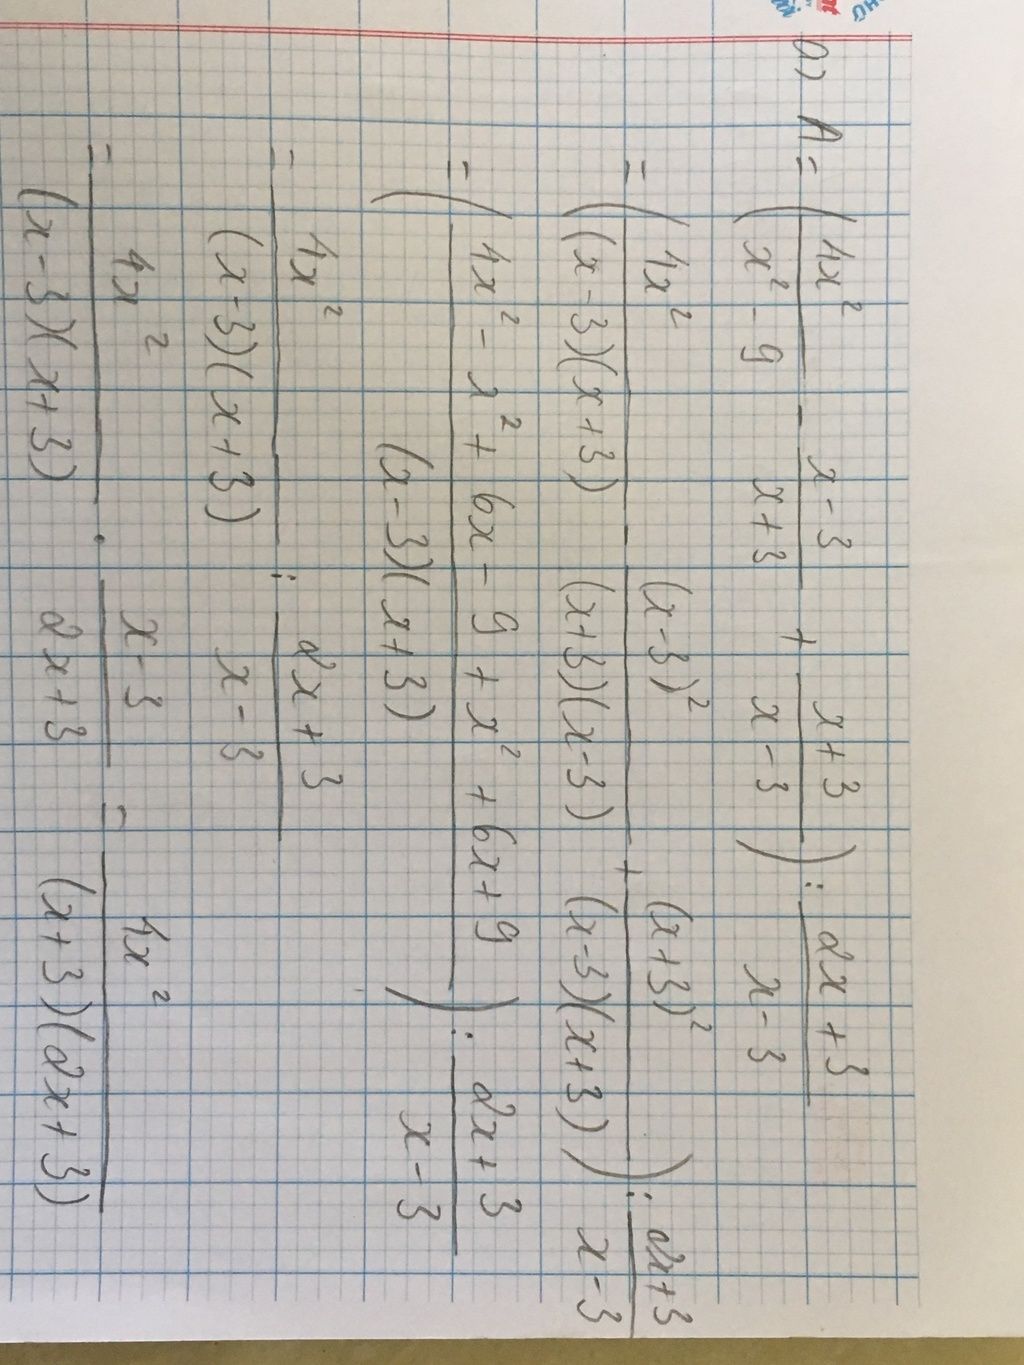 a) A = (4x²/(x² - 9) - (x - 3)/(x + 3) + (x + 3)/(x - 3)) : (2x + 3)/(x - 3)
= (4x²/((x - 3)(x + 3)) - (x - 3)²/((x + 3)(x - 3)) + (x + 3)²/((x - 3)(x + 3))) : (2x + 3)/(x - 3)
= ((4x² - x² + 6x - 9 + x² + 6x + 9)/((x - 3)(x + 3))) : (2x + 3)/(x - 3)
= 4x²/((x - 3)(x + 3)) : (2x + 3)/(x - 3)
= 4x²/((x - 3)(x + 3)) . (x - 3)/(2x + 3) = 4x²/((x + 3)(2x + 3))